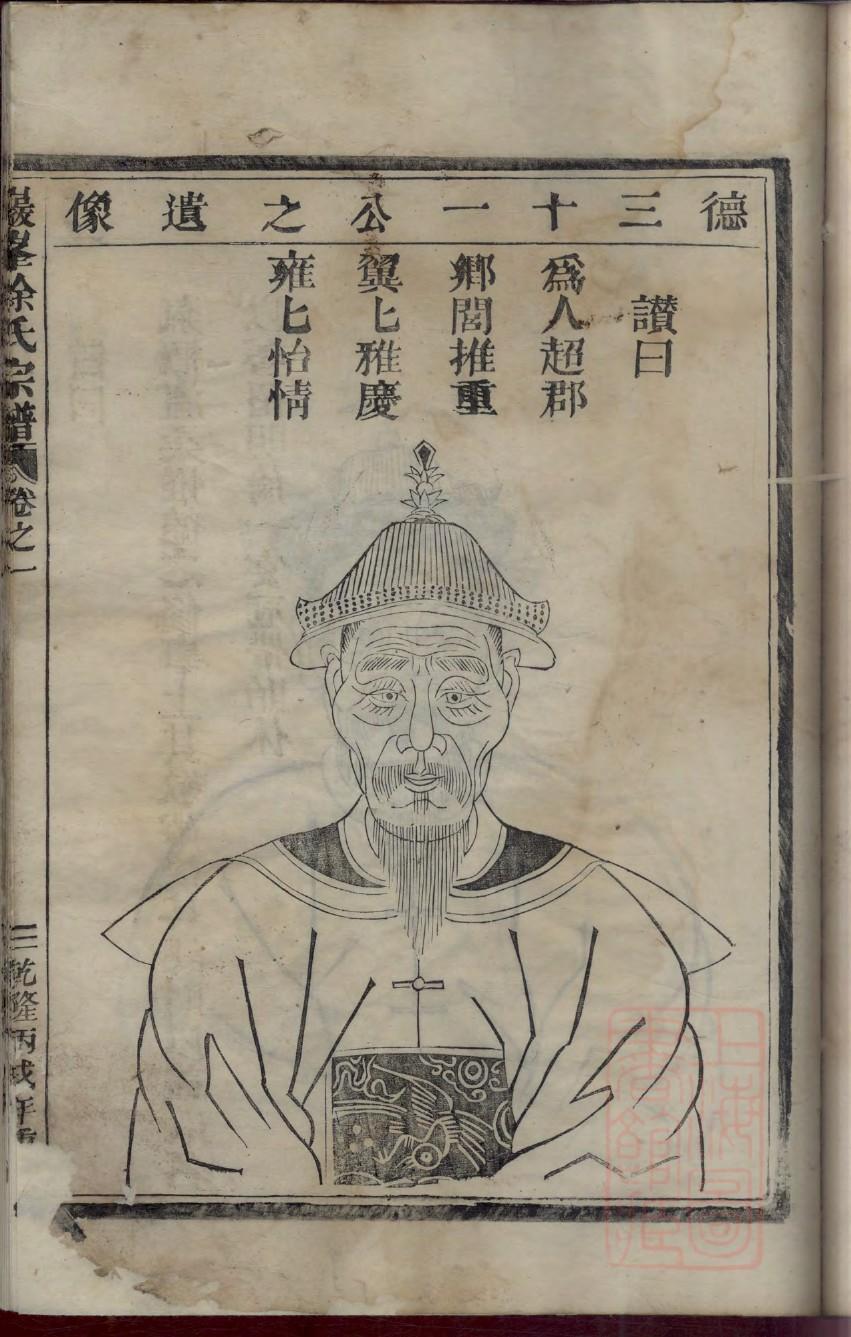 德三十一公之遺像
讃曰
爲人超郡
鄉閭推重
翼匕雅慶
雍匕怡情
巖峯徐氏宗譜
卷之一
三
乾隆丙戌年重
上海圖書館藏